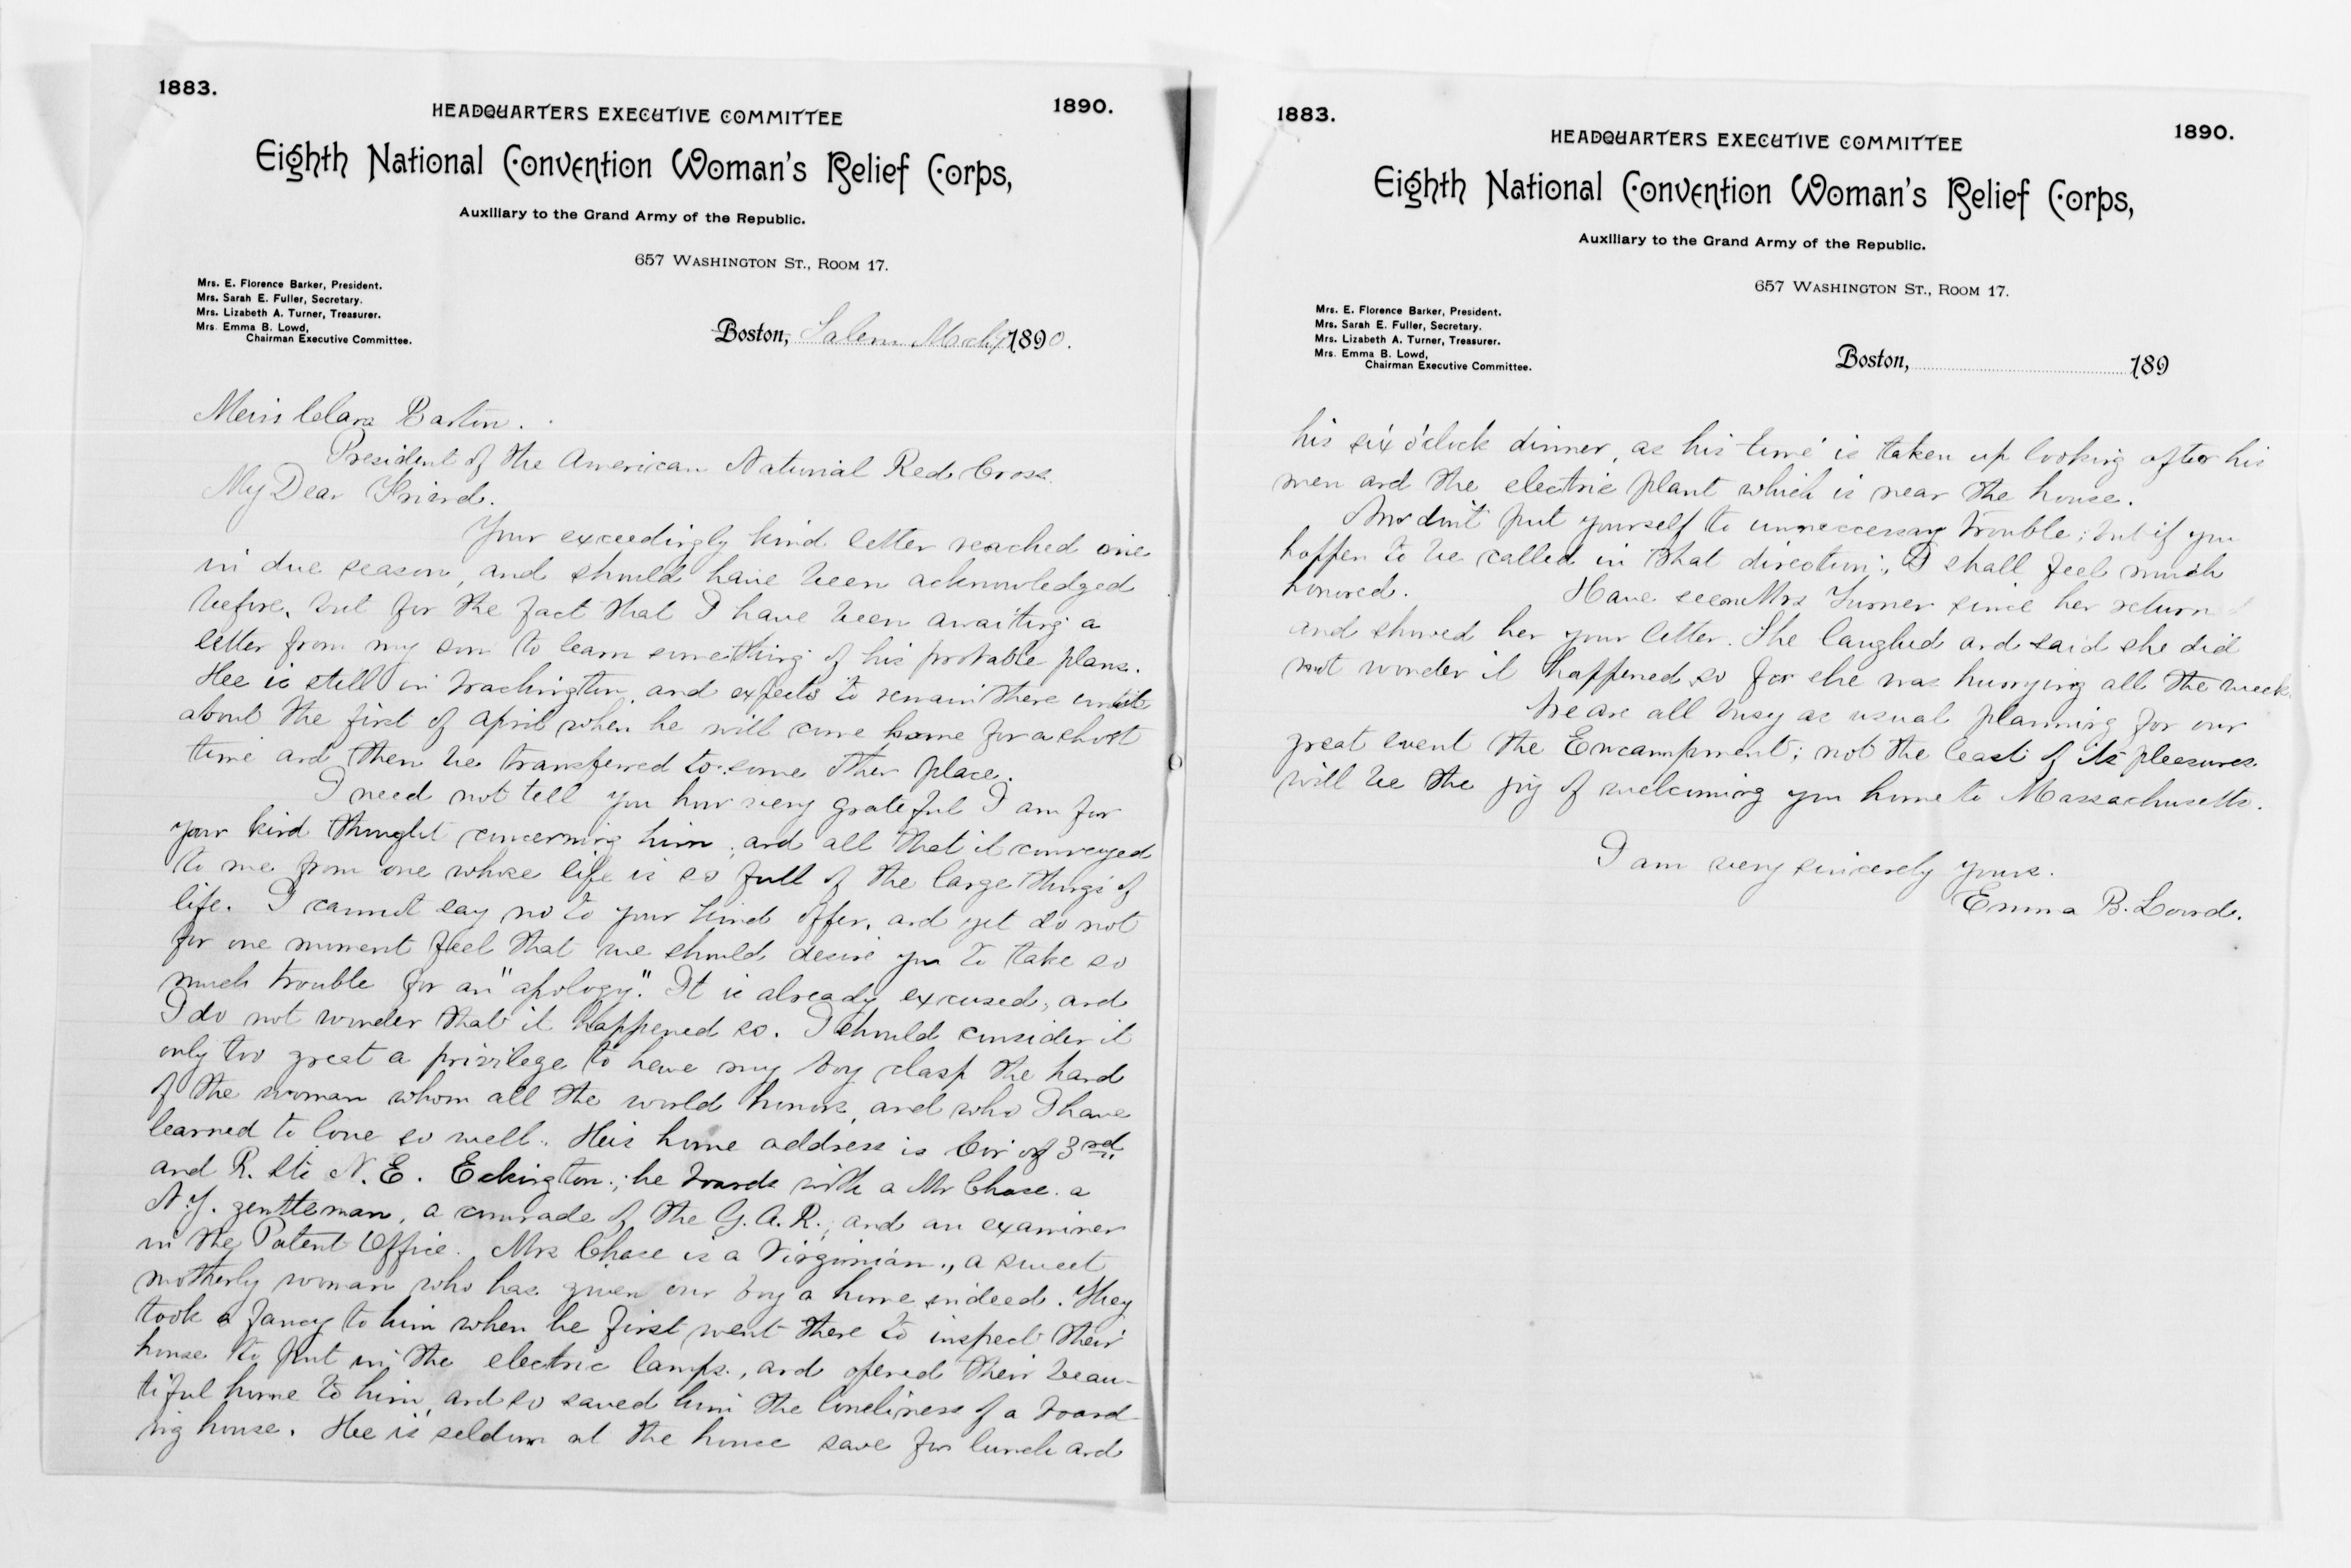 1883.
1890.
HEADQUARTERS EXECUTIVE COMMITTEE
Eighth National Convention Woman's Relief Corps,
Auxiliary to the Grand Army of the Republic.
657 WASHINGTON ST., ROOM 17.
Mrs. E. Florence Barker, President.
Mrs. Sarah E. Fuller, Secretary.
Mrs. Lizabeth A. Turner, Treasurer.
Mrs. Emma B. Lowd,
Chairman Executive Committee.
Boston, Salem 1890.
Miss Clara Barton.
President of the American National Red Cross.
My Dear Friend.
Your exceedingly kind letter reached me
in due season, and should have been acknowledged
before, but for the fact that I have been awaiting a
letter from my son to learn something of his probable plans.
He is still in Washington, and expects to remain there until
about the first of April when he will come home for a short
time and then be transferred to some other place.
I need not tell you how very grateful I am for
your kind thought concerning him; and all that it conveyed
to me from one whose life is so full of the large things of
life. I cannot say no to your kind offer, and yet do not
for one moment feel that we should desire you to take so
much trouble for an "apology". It is already excused, and
I do not wonder that it happened so. I should consider it
only too great a privilege to have my boy clasp the hand
of the woman whom all the world honors, and who I have
learned to love so well. His home address is Cor of 3rd
and R. Sts N.E. Eckington; he boards with a Mr Chase. a
N.Y. gentleman, a comrade of the G.A.R., and an examiner
in the Patent Office. Mrs Chase is a Virginian, a sweet
motherly woman who has given our boy a home indeed. They
took a fancy to him when he first went there to inspect their
house to put in the electric lamps, and opened their beau-
tiful home to him, and so saved him the loneliness of a board-
ing house. He is seldom at the house save for lunch and
1883.
1890.
HEADQUARTERS EXECUTIVE COMMITTEE
Eighth National Convention Woman's Relief Corps,
Auxiliary to the Grand Army of the Republic.
657 WASHINGTON ST., ROOM 17.
Mrs. E. Florence Barker, President.
Mrs. Sarah E. Fuller, Secretary.
Mrs. Lizabeth A. Turner, Treasurer.
Mrs. Emma B. Lowd,
Chairman Executive Committee.
Boston, 189
his six o'clock dinner, as his time is taken up looking after his
men and the electric plant which is near the house.
Now don't put yourself to unneccessary trouble; but if you
happen to be called in that direction, I shall feel much
honored. Have seen Mrs Turner since her return
and showed her your letter. She laughed and said she did
not wonder it happened so for she was hurrying all the week.
We are all busy as usual planning for our
great event the Encampment; not the least of its pleasures
will be the joy of welcoming you home to Massachusetts.
I am very sincerely yours.
Emma B. Lowd.